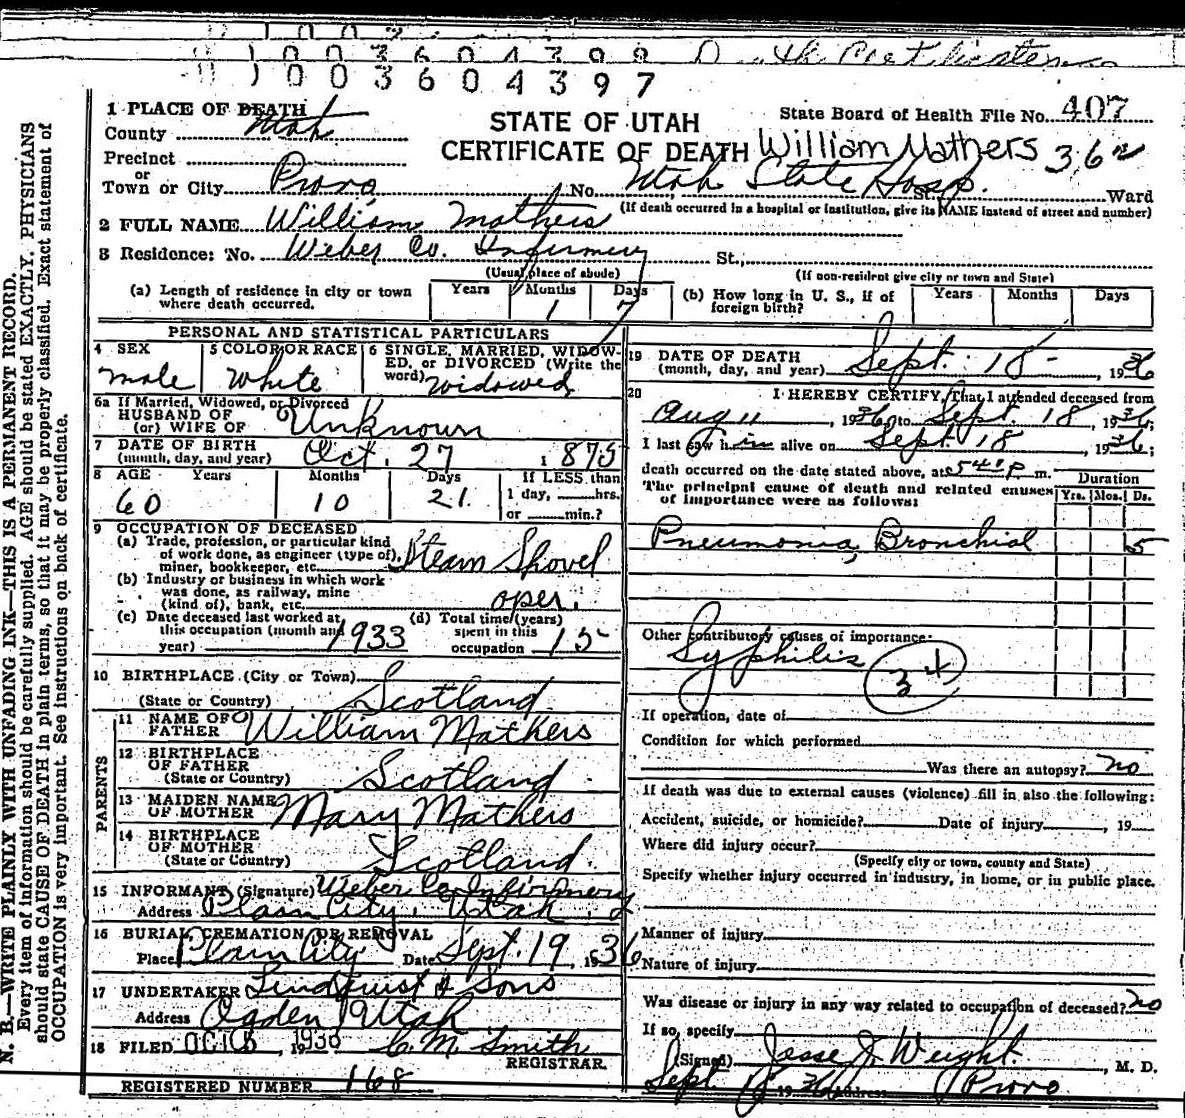 1003604399
th Certificate
1003604397
1 PLACE OF DEATH
County Utah
Precinct
or
Town or City Provo No. Utah State Hosp. St. Ward
(If death occurred in a hospital or institution, give its NAME instead of street and number)
STATE OF UTAH
CERTIFICATE OF DEATH William Mathers 36
State Board of Health File No. 407
2 FULL NAME William Mathers
3 Residence: No. Weber Co. Infirmary St.,
(Usual place of abode) (If non-resident give city or town and State)
(a) Length of residence in city or town where death occurred. Years Months 1 Days 7
(b) How long in U. S., if of foreign birth? Years Months Days
PERSONAL AND STATISTICAL PARTICULARS
4 SEX male
5 COLOR OR RACE White
6 SINGLE, MARRIED, WIDOWED, or DIVORCED (Write the word) widowed
6a If Married, Widowed, or Divorced
HUSBAND OF
(or) WIFE OF Unknown
7 DATE OF BIRTH
(month, day, and year) Oct. 27 1875
8 AGE Years Months Days If LESS than
60 10 21 1 day, hrs.
or min.?
9 OCCUPATION OF DECEASED
(a) Trade, profession, or particular kind
of work done, as engineer (type of),
miner, bookkeeper, etc. Steam Shovel
(b) Industry or business in which work
was done, as railway, mine
(kind of), bank, etc. oper.
(c) Date deceased last worked at
this occupation (month and
year) 1933
(d) Total time (years)
spent in this
occupation 15
10 BIRTHPLACE (City or Town)
(State or Country) Scotland
PARENTS
11 NAME OF
FATHER William Mathers
12 BIRTHPLACE
OF FATHER
(State or Country) Scotland
13 MAIDEN NAME
OF MOTHER Mary Mathers
14 BIRTHPLACE
OF MOTHER
(State or Country) Scotland.
15 INFORMANT (Signature) Weber Co Infirmary
Address Plain City, Utah
16 BURIAL, CREMATION OR REMOVAL
Place Plain City Date Sept. 19, 1936
17 UNDERTAKER Lindquist & Sons
Address Ogden Utah
18 FILED OCT 1936 C. M. Smith
REGISTRAR.
REGISTERED NUMBER 168
19 DATE OF DEATH
(month, day, and year) Sept. 18 -, 1936
20 I HEREBY CERTIFY, That I attended deceased from
Aug 11, 1936, to Sept. 18, 1936;
I last saw him alive on Sept. 18, 1936;
death occurred on the date stated above, at 541 P m.
The principal cause of death and related causes
of importance were as follows:
Duration
Yrs. Mos. Ds.
Pneumonia, Bronchial 5
Other contributory causes of importance:
Syphilis 34
If operation, date of
Condition for which performed
Was there an autopsy? no
If death was due to external causes (violence) fill in also the following:
Accident, suicide, or homicide? Date of injury, 19
Where did injury occur?
(Specify city or town, county and State)
Specify whether injury occurred in industry, in home, or in public place.
Manner of injury
Nature of injury
Was disease or injury in any way related to occupation of deceased? no
If so, specify
(Signed) Jesse J. Weight, M. D.
Sept 18 1936 Address Provo
N. B.—WRITE PLAINLY WITH UNFADING INK—THIS IS A PERMANENT RECORD.
Every item of information should be carefully supplied. AGE should be stated EXACTLY. PHYSICIANS
should state CAUSE OF DEATH in plain terms, so that it may be properly classified. Exact statement of
OCCUPATION is very important. See instructions on back of certificate.